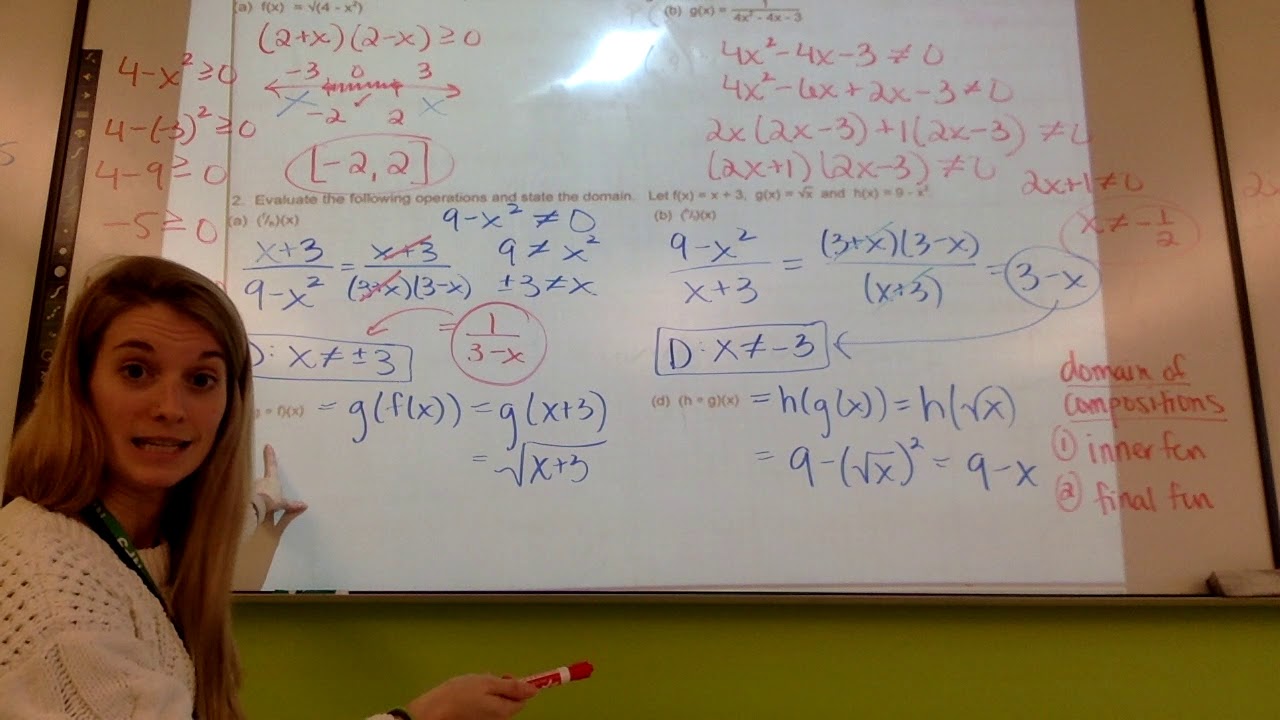 (a) f(x) = √(4 - x²)
(2+x)(2-x) ≥ 0
-3 0 3
-2 ✓ 2 x
[-2, 2]
4-x² ≥ 0
4-(-3)² ≥ 0
4-9 ≥ 0
-5 ≥ 0
(b) g(x) = 1/(4x² - 4x - 3)
4x²-4x-3 ≠ 0
4x²-6x+2x-3 ≠ 0
2x(2x-3)+1(2x-3) ≠ 0
(2x+1)(2x-3) ≠ 0
2x+1 ≠ 0
x ≠ -1/2
2. Evaluate the following operations and state the domain. Let f(x) = x + 3, g(x) = √x and h(x) = 9 - x².
(a) (f/h)(x)
9-x² ≠ 0
9 ≠ x²
±3 ≠ x
(x+3)/(9-x²) = (x+3)/((3+x)(3-x))
= 1/(3-x)
D: x ≠ ±3
(b) (h/f)(x)
(9-x²)/(x+3) = ((3+x)(3-x))/(x+3) = 3-x
D: x ≠ -3
∘ f)(x) = g(f(x)) = g(x+3)
= √(x+3)
(d) (h ∘ g)(x) = h(g(x)) = h(√x)
= 9-(√x)² = 9-x
domain of
compositions
① inner fcn
② final fun